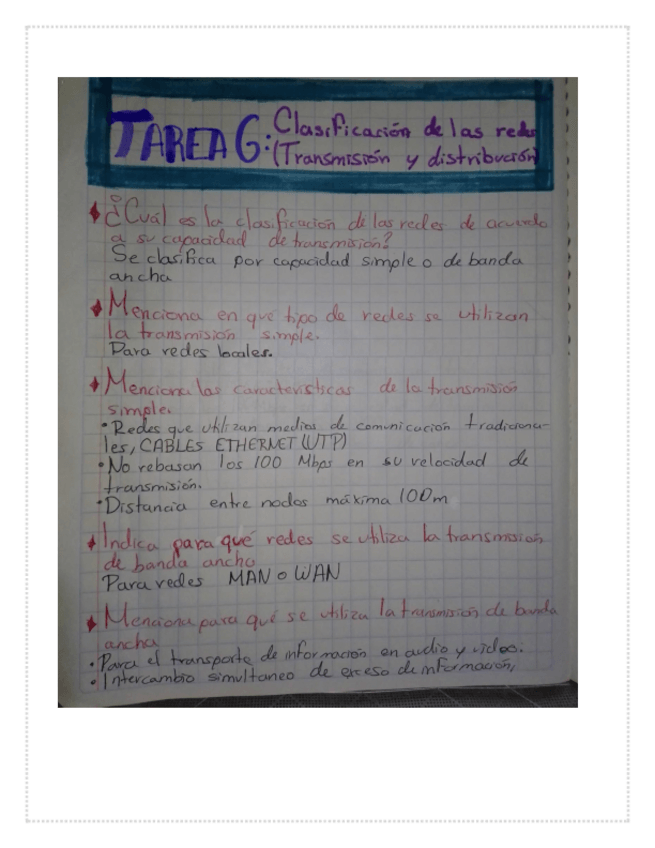 TAREA 6: Clasificación de las redes
(Transmisión y distribución)
¿Cuál es la clasificación de las redes de acuerdo
a su capacidad de transmisión?
Se clasifica por capacidad simple o de banda
ancha
Menciona en qué tipo de redes se utilizan
la transmisión simple.
Para redes locales.
Menciona las características de la transmisión
simple.
• Redes que utilizan medios de comunicación tradiciona-
les, CABLES ETHERNET (UTP)
• No rebasan los 100 Mbps en su velocidad de
transmisión.
• Distancia entre nodos máxima 100m
Indica para qué redes se utiliza la transmisión
de banda ancha
Para redes MAN o WAN
Menciona para qué se utiliza la transmisión de banda
ancha
• Para el transporte de información en audio y video.
• Intercambio simultaneo de exceso de información,